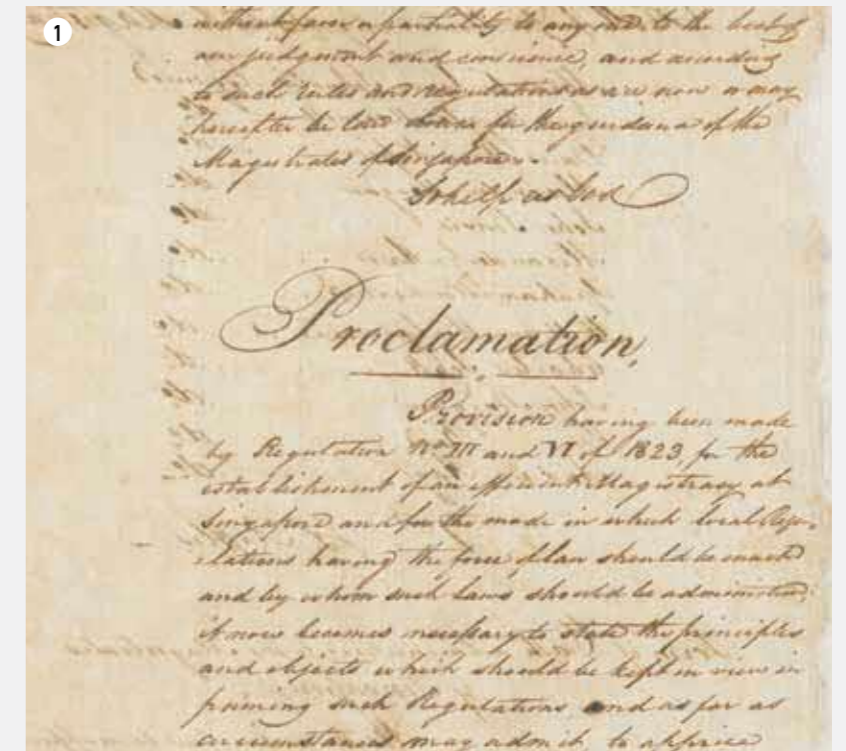 1
without favor or partiality to any one to the best of
our judgment and conscience, and according
to such Rules and Regulations as are now or may
hereafter be laid down for the guidance of the
Magistrates of Singapore.
So help us God
Proclamation,
Provision having been made
by Regulation No III and VI of 1823, for the
establishment of an efficient Magistracy at
Singapore and for the mode in which local Regu-
-lations having the force of law should be made
and by whom such laws should be administered;
it now becomes necessary to state the principles
and objects which should be kept in view in
framing such Regulations and as far as
circumstances may admit, to